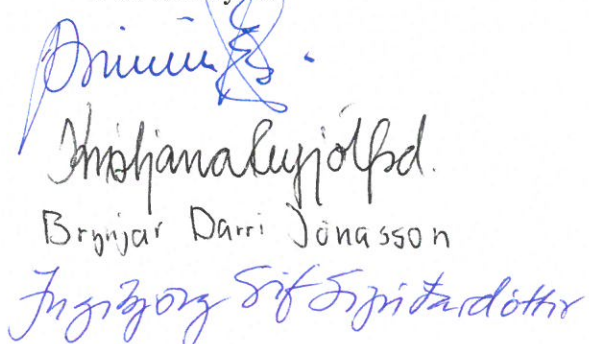 Kristjana Eyjólfsd.
Brynjar Darri Jónasson
Ingibjörg Sif Sigurðardóttir